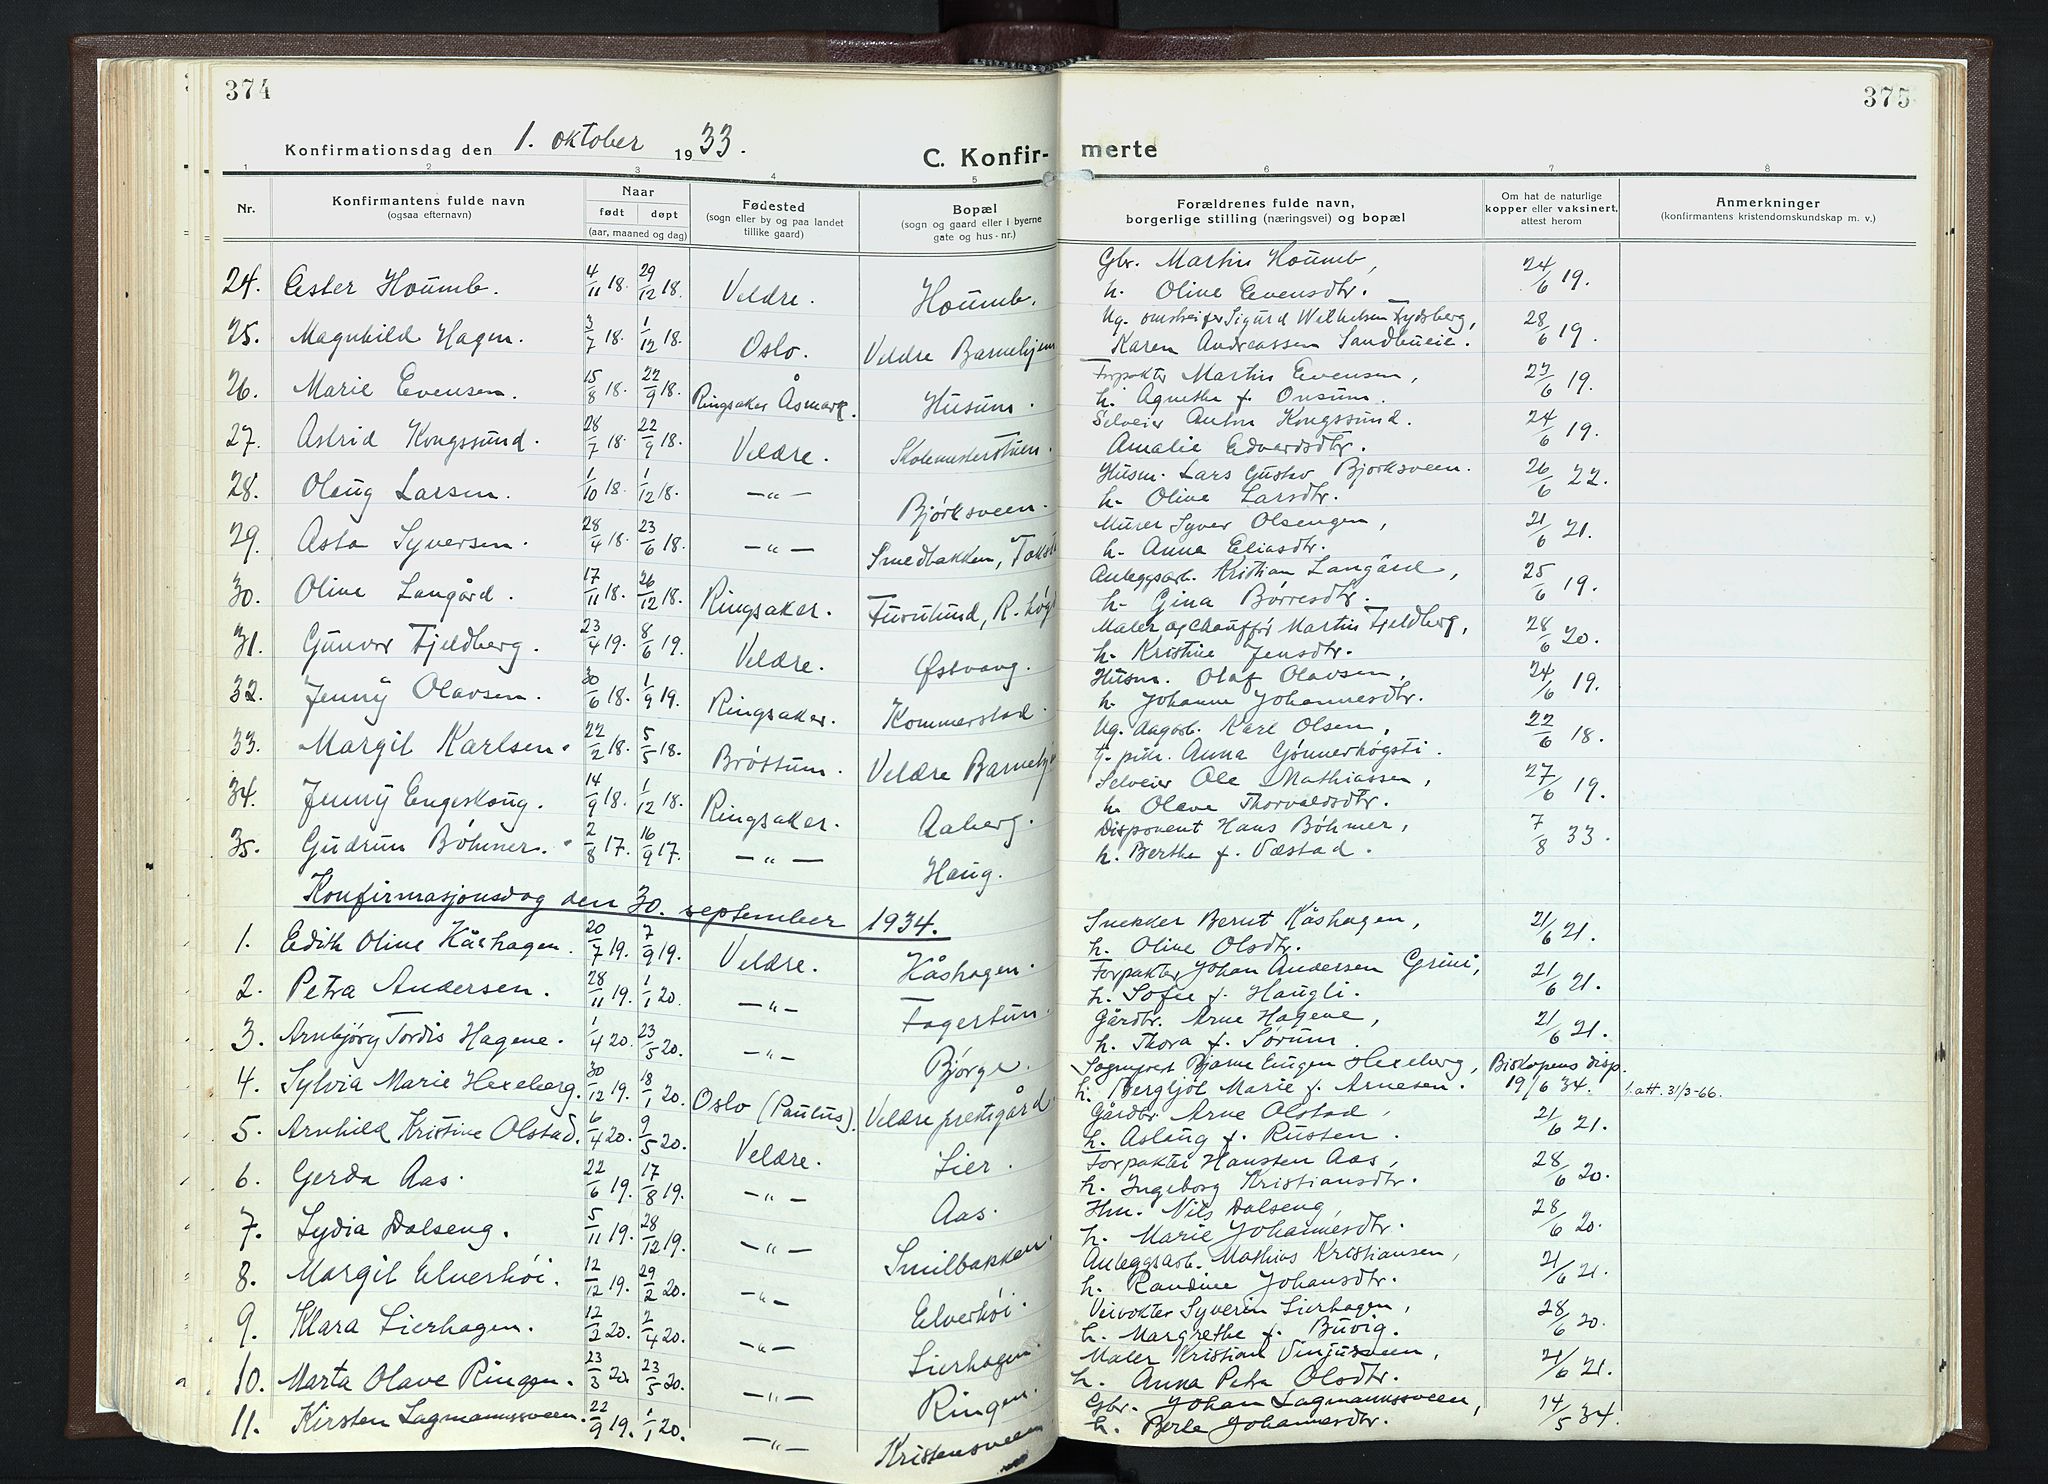 374
375
Konfirmationsdag den 1. oktober 1933.
C. Konfir- merte
1 2 3 4 5 6 7 8
Nr.
Konfirmantens fulde navn
(ogsaa efternavn)
Naar
født døpt
(aar, maaned og dag)
Fødested
(sogn eller by og paa landet
tillike gaard)
Bopæl
(sogn og gaard eller i byerne
gate og hus-nr.)
Forældrenes fulde navn,
borgerlige stilling (næringsvei) og bopæl
Om hat de naturlige
kopper eller vaksinert,
attest herom
Anmerkninger
(konfirmantens kristendomskundskap m. v.)
24. Ester Houmb. 4/11 18. 29/12 18. Veldre. Houmb. Gbr. Martin Houmb, 24/6 19.
h. Olive Evensdtr.
25. Magnhild Hagen. 3/7 18. 1/12 18. Oslo. Veldre Barnehjem Ug. omstreifer Sigurd Wilhelmsen Fydsberg, 28/6 19.
Karen Andreassen Sandbueie.
26. Marie Evensen. 15/8 18. 22/9 18. Ringsaker Åsmark. Husum. Forpakter Martin Evensen, 23/6 19.
h. Agnethe f. Onsum.
27. Astrid Kongssund. 28/7 18. 22/9 18. Veldre. Skolemesterstuen. Selveier Anton Kongssund. 24/6 19.
Amalie Edvardsdtr.
28. Olaug Larsen. 1/10 18. 1/12 18. —〃— Bjørksveen. Husm. Lars Gustav Bjørksveen. 26/6 22.
h. Olive Larsdtr.
29. Asta Syversen. 28/4 18. 23/6 18. —〃— Smedbakken, Murer Syver Olsengen, 21/6 21.
h. Anna Eliasdtr.
30. Olive Langård. 17/11 18. 26/12 18. Ringsaker. Furulund, R. høg Anleggsarb. Kristian Langård, 25/6 19.
h. Gina Børresdtr.
31. Gunvor Fjeldberg. 23/4 19. 8/6 19. Veldre. Østvang. Maler og chauffør Martin Fjeldberg, 28/6 20.
h. Kristine Jensdtr.
32. Jenny Olavsen. 30/6 18. 1/9 19. Ringsaker. Kommerstad. Husm. Olaf Olavsen, 24/6 19.
h. Johanne Johannesdtr.
33. Margit Karlsen. 22/2 18. 5/5 18. Brøttum. Veldre Barnehj. Ug. dagarb. Karl Olsen, 22/6 18.
tj. pike. Anna Gønnerhøgsti.
34. Jenny Engeskaug. 14/9 18. 1/12 18. Ringsaker. Aaberg. Selveier Ole Mathiassen, 27/6 19.
h. Olave Thorvaldsdtr.
35. Gudrun Bøhmer. 2/8 17. 16/9 17. —〃— Haug. Disponent Hans Bøhmer, 7/8 33.
h. Berthe f. Væstad.
Konfirmasjonsdag den 30. september 1934.
1. Edith Oline Kåshagen. 20/7 19. 7/9 19. Veldre. Kåshagen. Snekker Bernt Kåshagen, 21/6 21.
h. Olive Olsdtr.
2. Petra Andersen. 28/11 19. 1/1 20. —〃— Fagertun. Forpakter Johan Andersen Grini, 21/6 21.
h. Sofie f. Haugli.
3. Arnbjørg Tordis Hagene. 1/4 20. 23/5 20. —〃— Bjørge. Gårdbr. Arne Hagene, 21/6 21.
h. Thora f. Sørum.
4. Sylvia Marie Hexeberg. 30/12 19. 18/1 20. Oslo (Paulus). Veldre prestgård. Sogneprest Bjarne Eugen Hexeberg, Biskopens disp.
h. Bergljot Marie f. Arnesen. 19/6 34. 1. att. 31/3-66.
5. Arnhild Kristine Olstad. 6/4 20. 9/5 20. Veldre. Lier. Gårdbr. Arne Olstad, 21/6 21.
h. Aslaug f. Rusten.
6. Gerda Aas. 22/6 19. 17/8 19. —〃— Aas. Forpakter Hansten Aas, 28/6 20.
h. Ingeborg Kristiansdtr.
7. Lydia Dalseng. 5/11 19. 28/12 19. —〃— Smilbakken. Hm. Nils Dalseng, 28/6 20.
h. Marie Johannesdtr.
8. Margit Elverhøi. 12/12 19. 29/2 20. —〃— Elverhøi. Anleggsarb. Mathias Kristiansen, 21/6 21.
h. Randine Johansdtr.
9. Klara Lierhagen. 12/2 20. 2/4 20. —〃— Lierhagen. Veivokter Syverin Lierhagen, 28/6 20.
h. Margrethe f. Buvig.
10. Marta Olave Ringen. 23/3 20. 23/5 20. —〃— Ringen. Maler Kristian Vinjusveen, 21/6 21.
h. Anna Petra Olsdtr.
11. Kirsten Lagmannssveen. 22/9 19. 1/1 20. —〃— Kristensveen Gbr. Johan Lagmannssveen, 14/5 34.
h. Berle Johannesdtr.